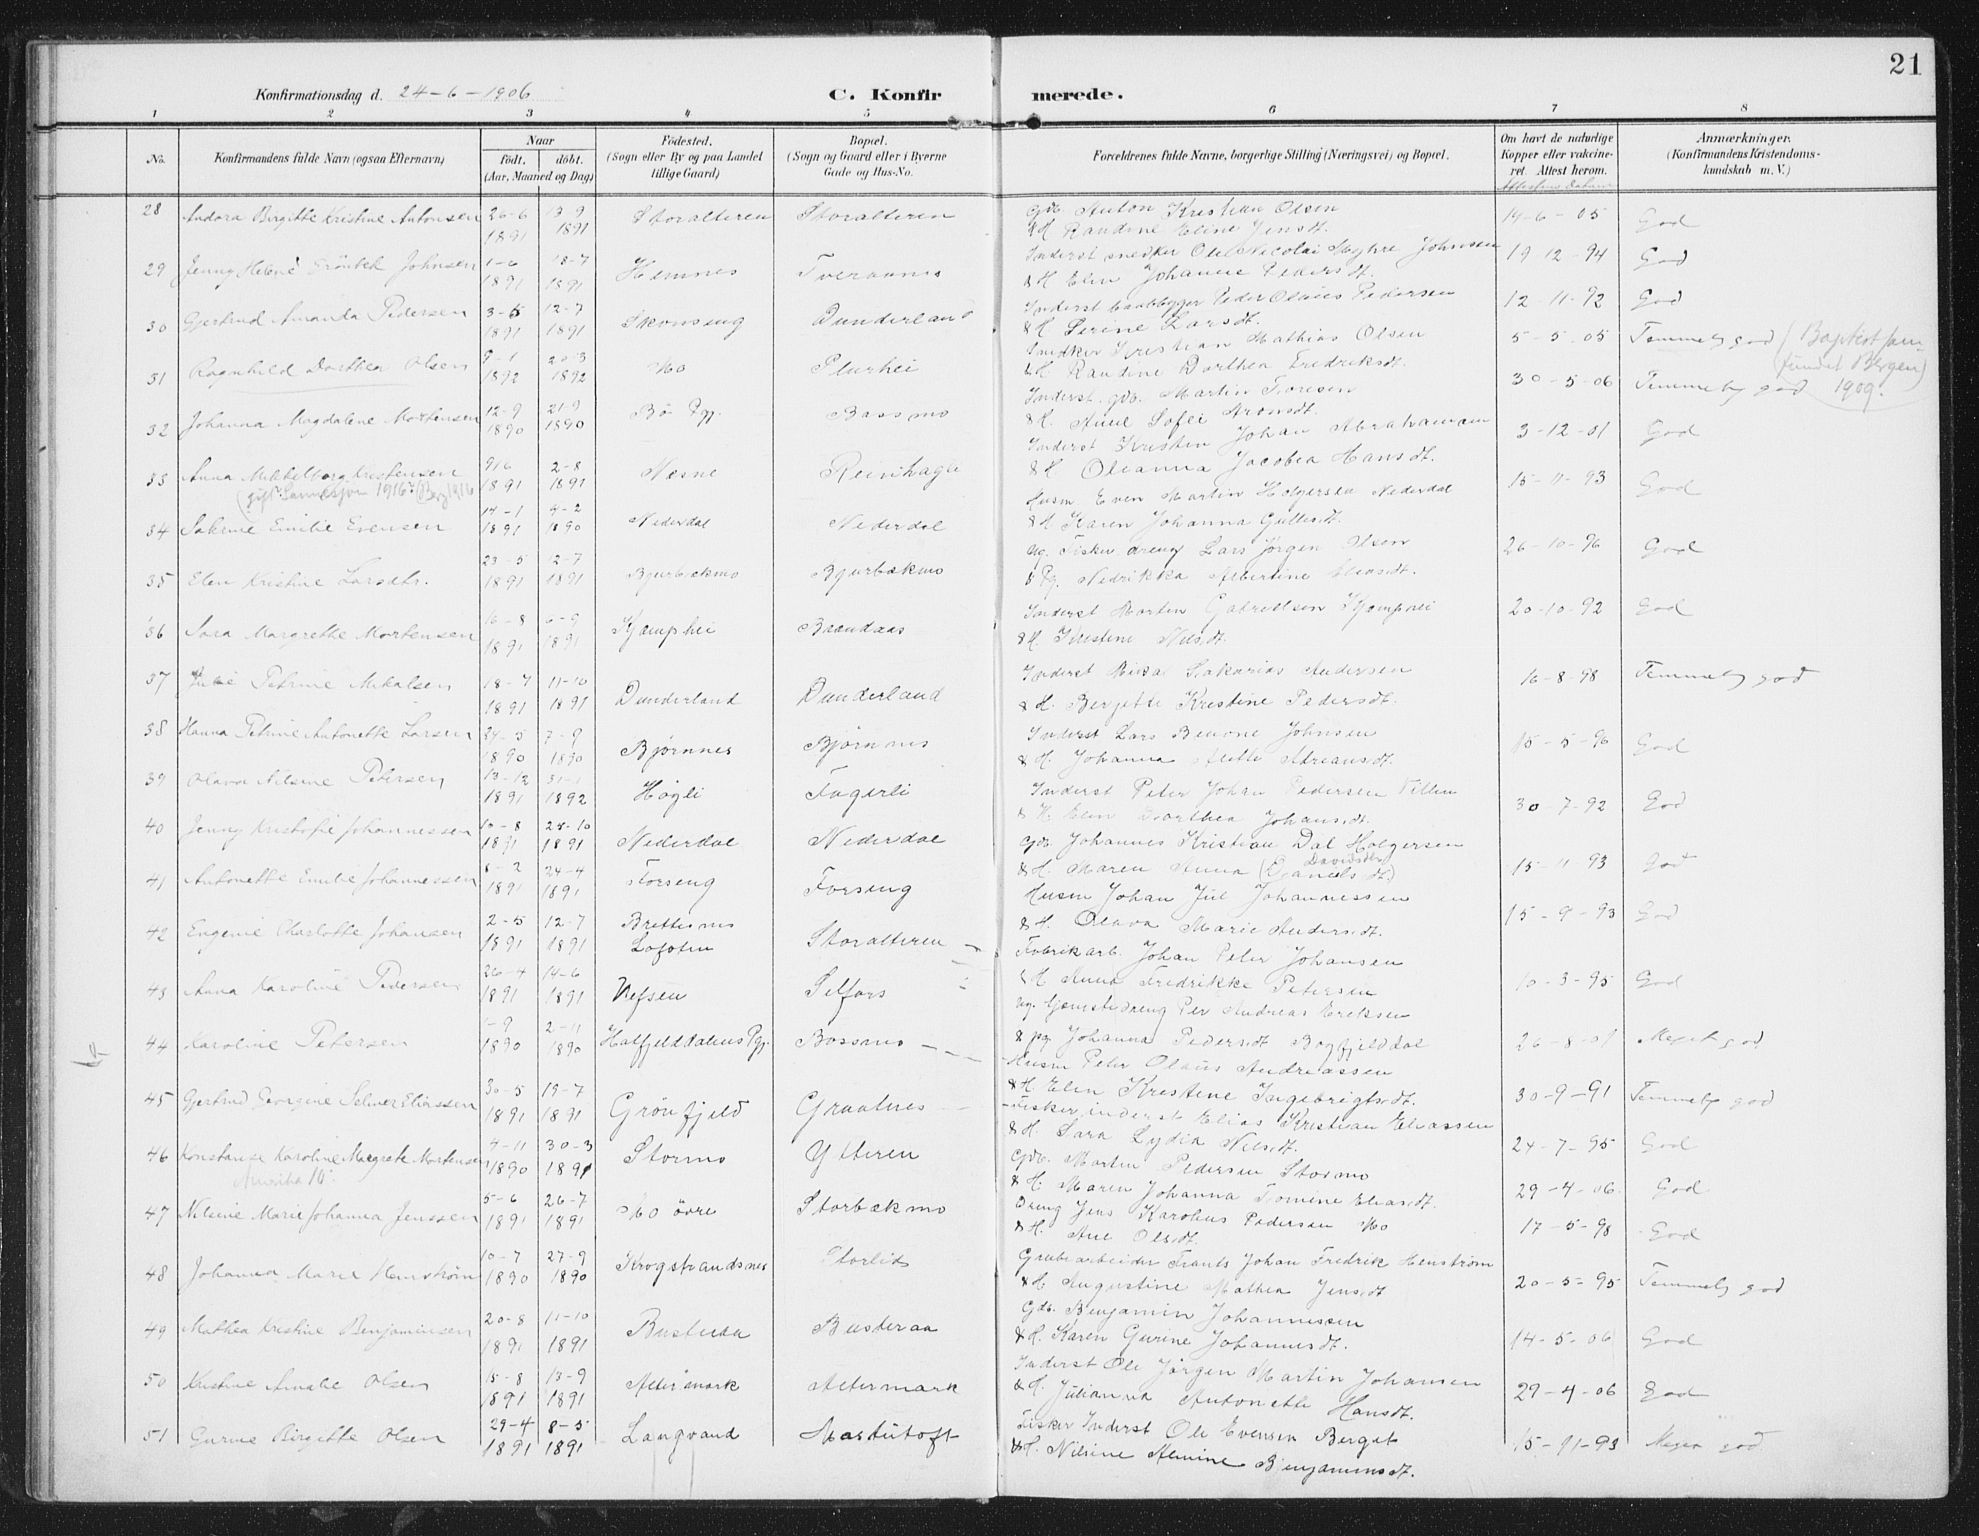 21
Konfirmationsdag d. 24-6-1906
C. Konfirmerede.
1 2 3 4 5 6 7 8
No. Konfirmandens fulde Navn (ogsaa Efternavn) Naar födt. döbt. (Aar, Maaned og Dag) Födested. (Sogn eller By og paa Landet tillige Gaard) Bopæl. (Sogn og Gaard eller i Byerne Gade og Hus-No. Forældrenes fulde Navne, borgerlige Stilling (Næringsvei) og Bopæl. Om havt de naturlige Kopper eller vakcineret. Attest herom. Attestens datum Anmærkninger. (Konfirmandens Kristendomskundskab m. V.)
28 Andora Birgitte Kristine Antonsen 26-6 1891 13-9 1891 Storalteren Storalteren Gdb. Anton Kristian Olsen & H Randine Eline Jensdt. 14-6-05 God
29 Jenny Helene Johnsen 1-6 1891 18-7 1891 Hemnes Tveraanes Inderst snedker Ole Nicolai Myhre Johnsen & H Elen Johanne Pedersdt. 19-12-94 God
30 Gjertrud Amanda Pedersen 3-5 1891 12-7 1891 Skonseng Dunderland Inderst Peder Olaus Pedersen & H. Serine Larsdt. 12-11-92 God
31 Ragnhild Dorthea Olsen 9-1 1892 20-3 1892 Mo Plurhei Snedker Kristian Mathias Olsen & H Randine Dorthea Fredriksdt. 5-5-05 Temmelig god (Baptistsamfundet Bergen) 1909.
32 Johanna Magdalene Mortensen 12-9 1890 21-9 1890 Bö Pgj. Bassmo Inderst. gdb. Martin Toresen & H. Anne Sofei Aronsdt. 30-5-06 Temmelig god
33 Anna Mikkelborg Kristensen (gift Sannesjøen 1916 (Berg 1916 9/6 1891 2-8 1891 Nesne Reinhagle Inderst Kristen Johan Abrahamsen & H Oleanna Jacobea Hansdt. 3-12-01 God
34 Sakrine Emilie Evensen 14-1 1891 4-2 1890 Nederdal Nederdal Husm Even Martin Holgersen Nederdal & H Karen Johanna Gullesdt. 15-11-93 God
35 Elen Kristine Larsdtr. 23-5 1891 12-7 1891 Bjurbækmo Bjurbækmo Ug. Fisker dreng Lars Jørgen Olsen & Pg. Nedrikka Albertine Eliasdt. 26-10-96 God
36 Sara Margrethe Mortensen 16-8 1891 6-9 1891 Kjæmphei Brændaas Inderst Morten Gabrielsen Kjæmphei & H. Kristine Nilsdt. 20-10-92 God
37 Julie Petrine Mikalsen 18-7 1891 11-10 1891 Dunderland Dunderland Inderst Mikal Sakarias Andersen & H. Bergitte Kristine Pedersdt. 16-8-98 Temmelig god
38 Hanna Petrine Antonette Larsen 24-5 1890 7-9 1890 Bjørnnes Bjørnnes Inderst Lars Benone Johnsen & H. Johanna Mette Adriansdt. 15-5-96 God
39 Olava Nilsine Petersen 13-12 1891 31-1 1892 Høgli Fagerli Inderst Peter Johan Pedersen & H. Elen Dorthea Johansdt. 30-7-92 God
40 Jenny Kristofie Johannessen 10-8 1891 28-10 1891 Nederdal Nederdal Gdb. Johannes Kristian Dal Holgersen & H. Maren Anna (Daniels dt.) Davidsdtr 15-11 93 God
41 Antonette Emilie Johannessen 8-2 1891 24-4 1891 Forseng Forseng Husm Johan Jül Johannessen & H. Olava Marie Andersdt. 15-9-93 God
42 Eugenie Charlotte Johansen 2-5 1891 12-7 1891 Brettesnes Lofoten Storalteren Fabrikarb. Johan Peter Johansen & H Anna Fredrikke Petersen 10-3-95 God
43 Anna Karoline Pedersen 26-4 1891 14-6 1891 Vefsen Selfors Ug. Per Andreas Eriksen & pg. Johanna Pedersdt Bogfjelddal 26-8-01 Meget god
44 Karoline Petersen 1-9 1890 2-11 1890 Hatfjelddalens Pgj. Bossmo Husm Peter Olaus Andreassen & H Elen Kristine Ingebrigtsdt. 30-9-91 Temmelig god
45 Gjertrud Georgine Selmer Eliassen 30-5 1891 19-7 1891 Grönfjeld Graatnes Fisker, inderst Elias Kristian Eliassen & H. Sara Lydia Nilsdt. 24-7-95 God
46 Konstanse Karoline Margrete Mortensen Amerika 10. 4-11 1890 30-3 1891 Stormo Ytteren Gdb. Morten Pedersen Stormo & H. Maren Johanna Tomine Eliasdt. 29-4-06 God
47 Nilsine Marie Johanna Jenssen 5-6 1891 26-7 1891 Mo övre Storbækmo Dreng Jens Karolius Pedersen Mo & H. Ane Olsdt. 17-5-98 God
48 Johanna Marie Henstrøm 10-7 1890 27-9 1890 Krogstrandsnes Storlid Grubearbeider Frants Johan Fredrik Henstrøm & H. Augustine Mathea Jensdt 20-5-95 Temmelig god
49 Mathea Kristine Benjaminsen 20-8 1891 11-10 1891 Busteraa Busteraa Gdb. Benjamin Johannessen & H. Karen Gurine Johannesdt. 14-5-06 God
50 Kristine Amalie Olsen 15-8 1891 13-9 1891 Altermark Altermark Inderst Ole Jørgen Martin Johansen & H. Julianna Antonette Hansdt. 29-4-06 God
51 Gurine Birgitte Olsen 29-4 1891 8-5 1891 Langvand Mastutoft Fisker Inderst Ole Evensen Berget & H. Nilsine Almine Benjaminsdt. 15-11-93 Meget god